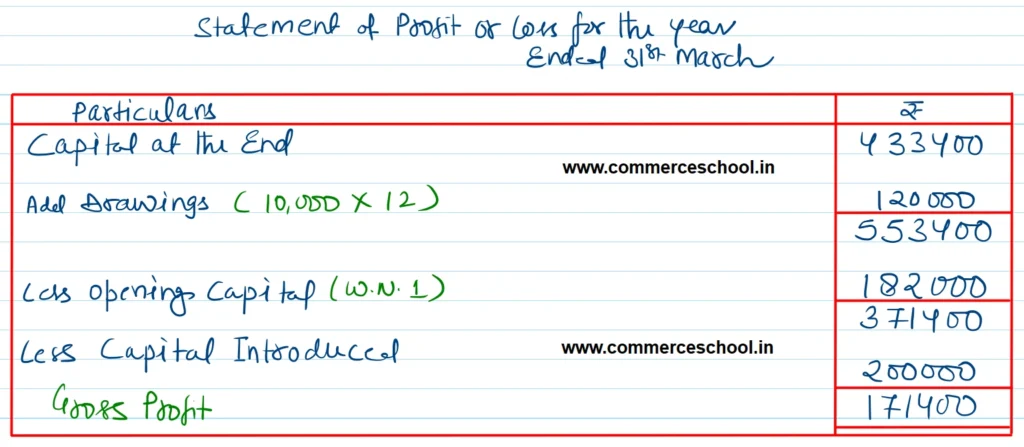 Statement of Profit or Loss for the year
Ended 31st March
Particulars ₹
Capital at the End 433400
www.commerceschool.in
Add Drawings (10,000 × 12) 120000
553400
Less Opening Capital (W.N. 1) 182000
371400
Less Capital Introduced www.commerceschool.in
200000
Gross Profit 171400